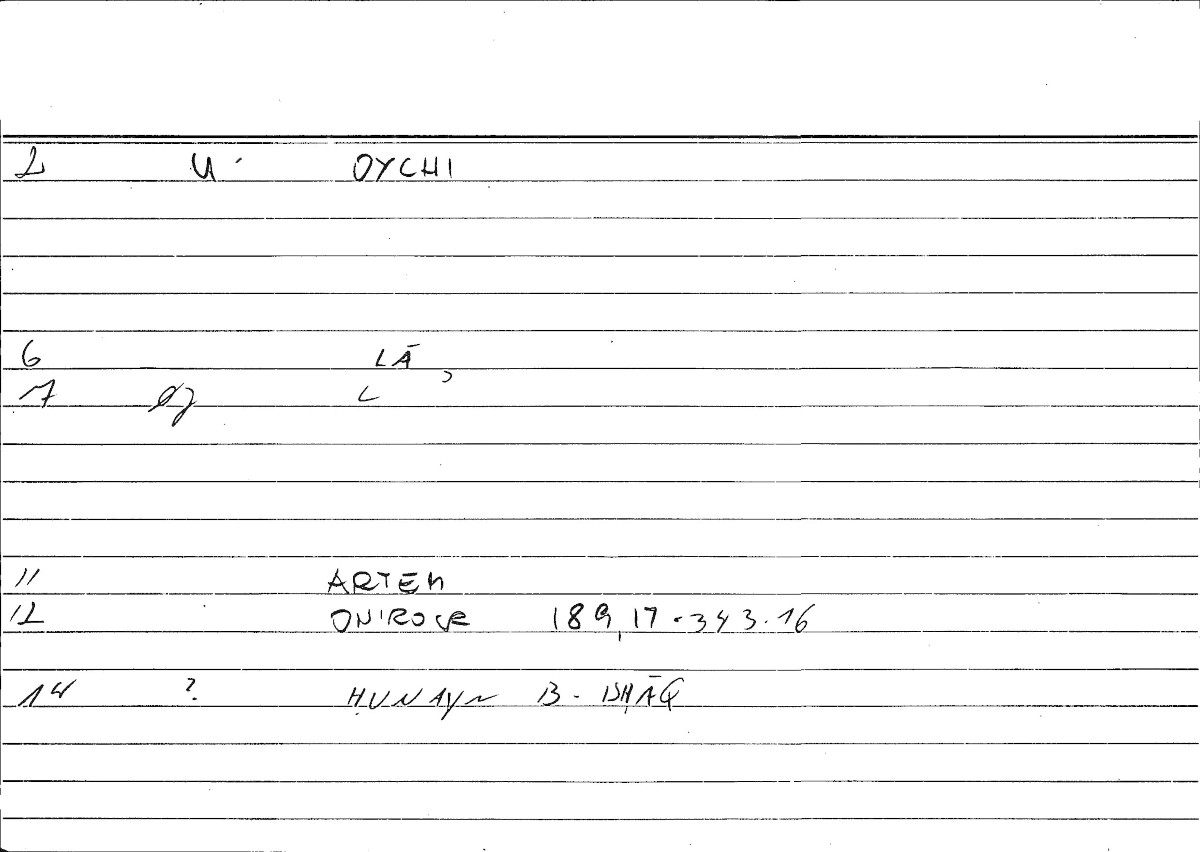 2 U. ΟΥCΗΙ
6 LĀ
7 øj L
11 ARTEM
12 ONIROCR 189,17-343.16
14 ? ḤUNAYN B. ISḤĀQ